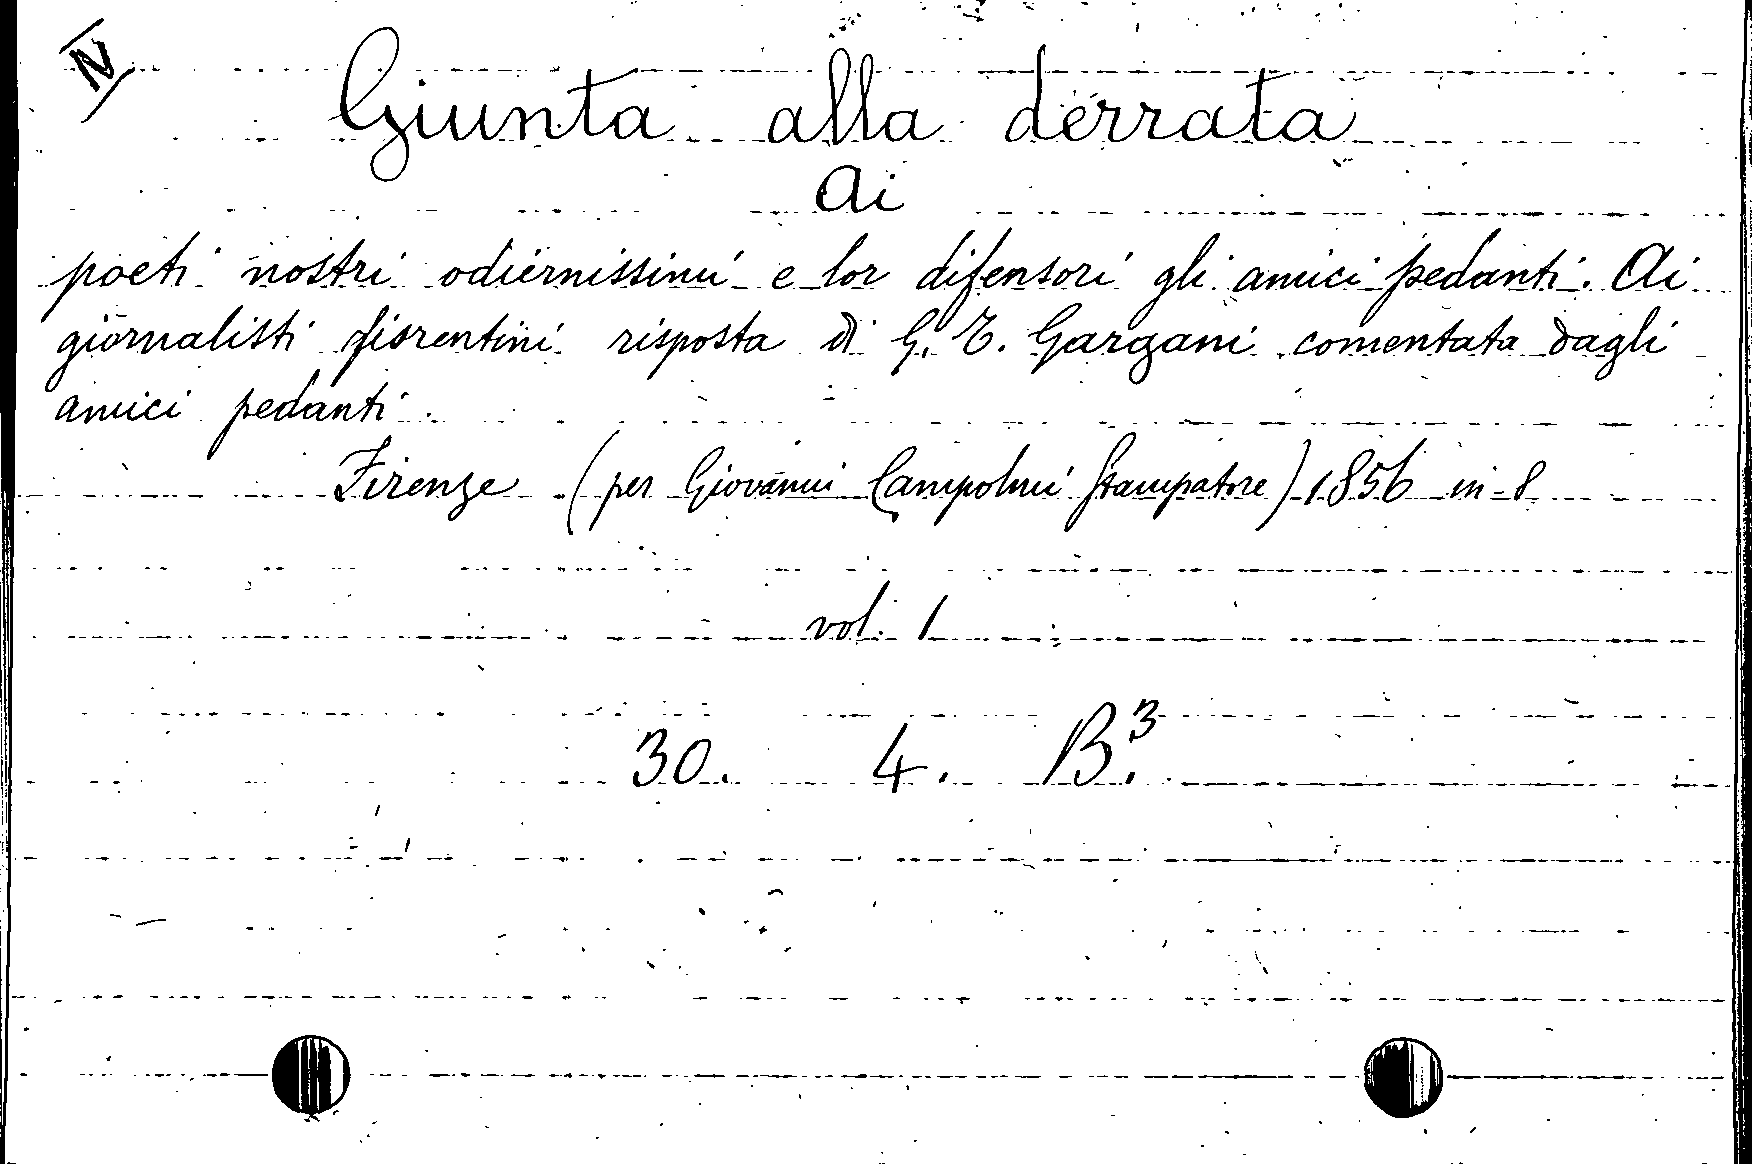 N
Giunta alla derrata
Ai
poeti nostri odiernissimi e lor difensori gli amici pedanti. Ai
giornalisti fiorentini risposta di G. T. Gargani comentata dagli
amici pedanti.
Firenze (per Giovanni Campolmi Stampatore) 1856 in-8
vol. 1
30. 4. B.3